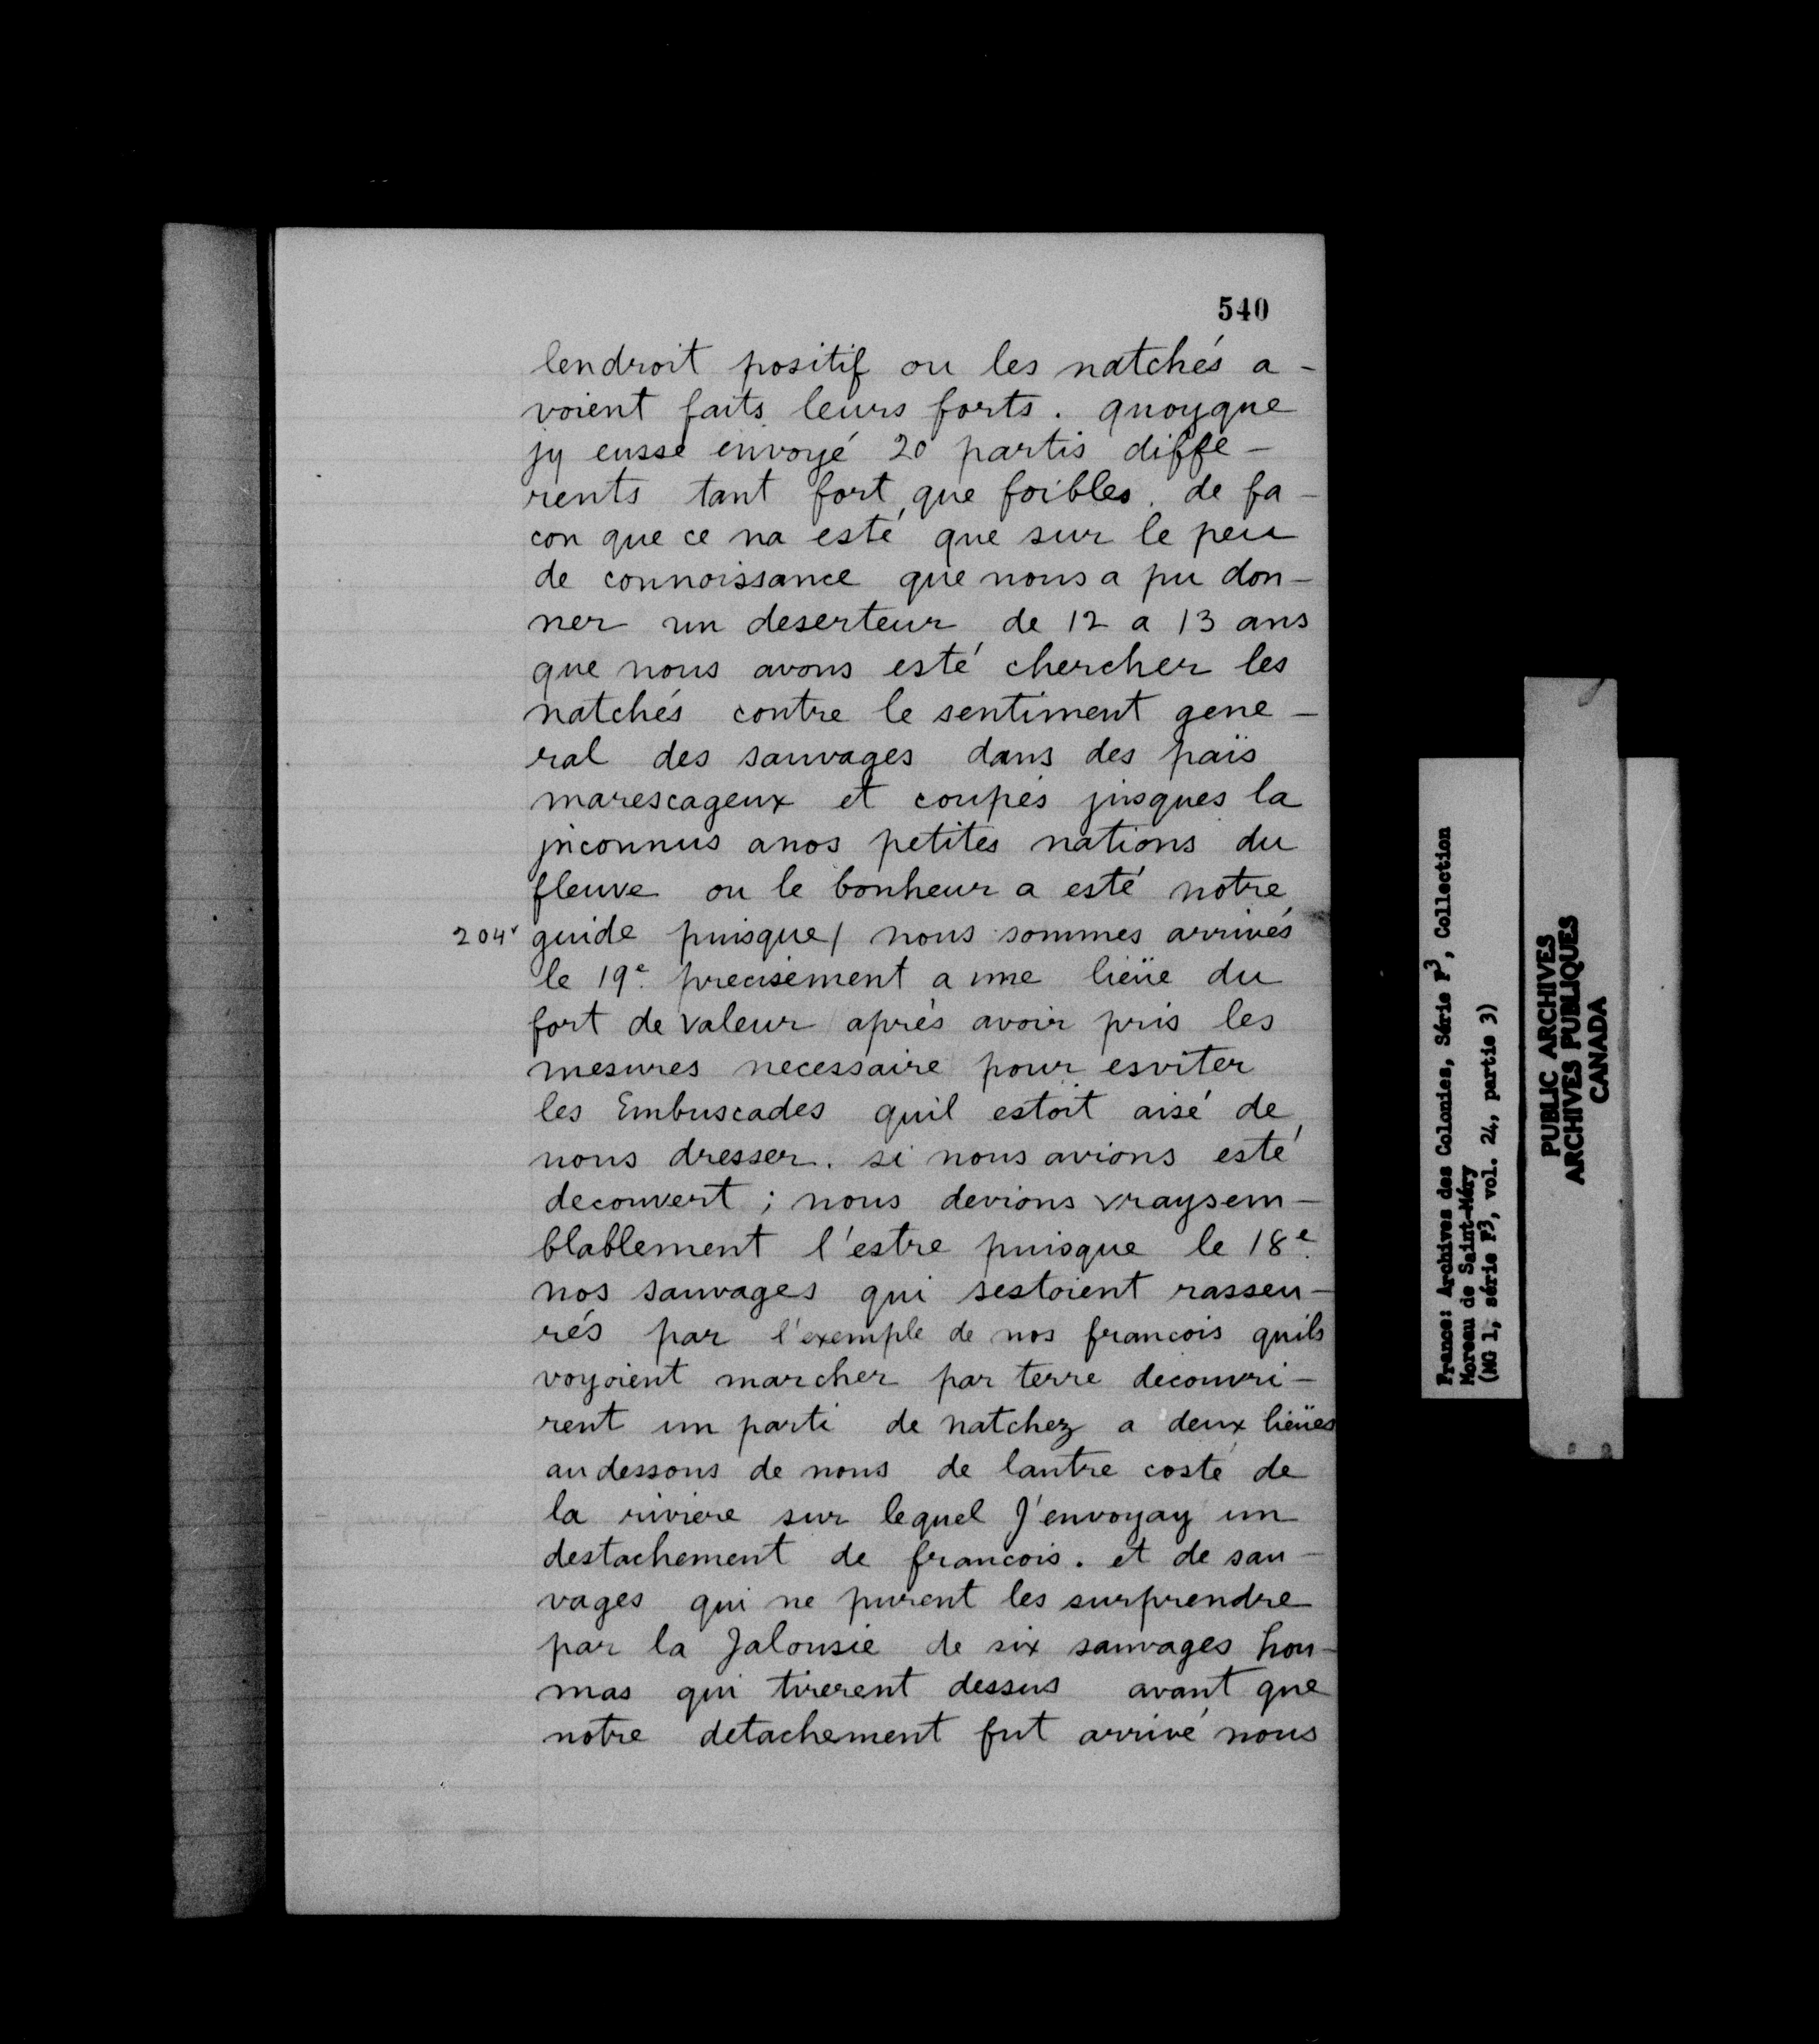 540
lendroit positif ou les natchés a-
voient faits leurs forts. quoyque
jy eusse envoyé 20 partis diffe-
rents tant fort que foibles. de fa-
con que ce na esté que sur le peu
de connoissance que nous a pu don-
ner un deserteur de 12 a 13 ans
que nous avons esté chercher les
natchés contre le sentiment gene-
ral des sauvages dans des païs
marescageux et coupés jusques la
jnconnus anos petites nations du
fleuve ou le bonheur a esté notre
204v guide puisque/ nous sommes arrivés
le 19e. precisement a une lieüe du
fort de valeur aprés avoir pris les
mesures necessaire pour esviter
les Embuscades quil estoit aisé de
nous dresser. si nous avions esté
decouvert; nous devions vraysem-
blablement l'estre puisque le 18e.
nos sauvages qui sestoient rasseu-
rés par l'exemple de nos francois quils
voyoient marcher par terre decouvri-
rent un parti de natchez a deux lieües
au dessous de nous de lautre costé de
la riviere sur lequel J'envoyay un
destachement de francois. et de sau-
vages qui ne purent les surprendre
par la Jalousie de six sauvages hou-
mas qui tirerent dessus avant que
notre detachement fut arrivé nous
France: Archives des Colonies, Série F3, Collection
Moreau de Saint-Méry
(MG 1, série F3, vol. 24, partie 3)
PUBLIC ARCHIVES
ARCHIVES PUBLIQUES
CANADA